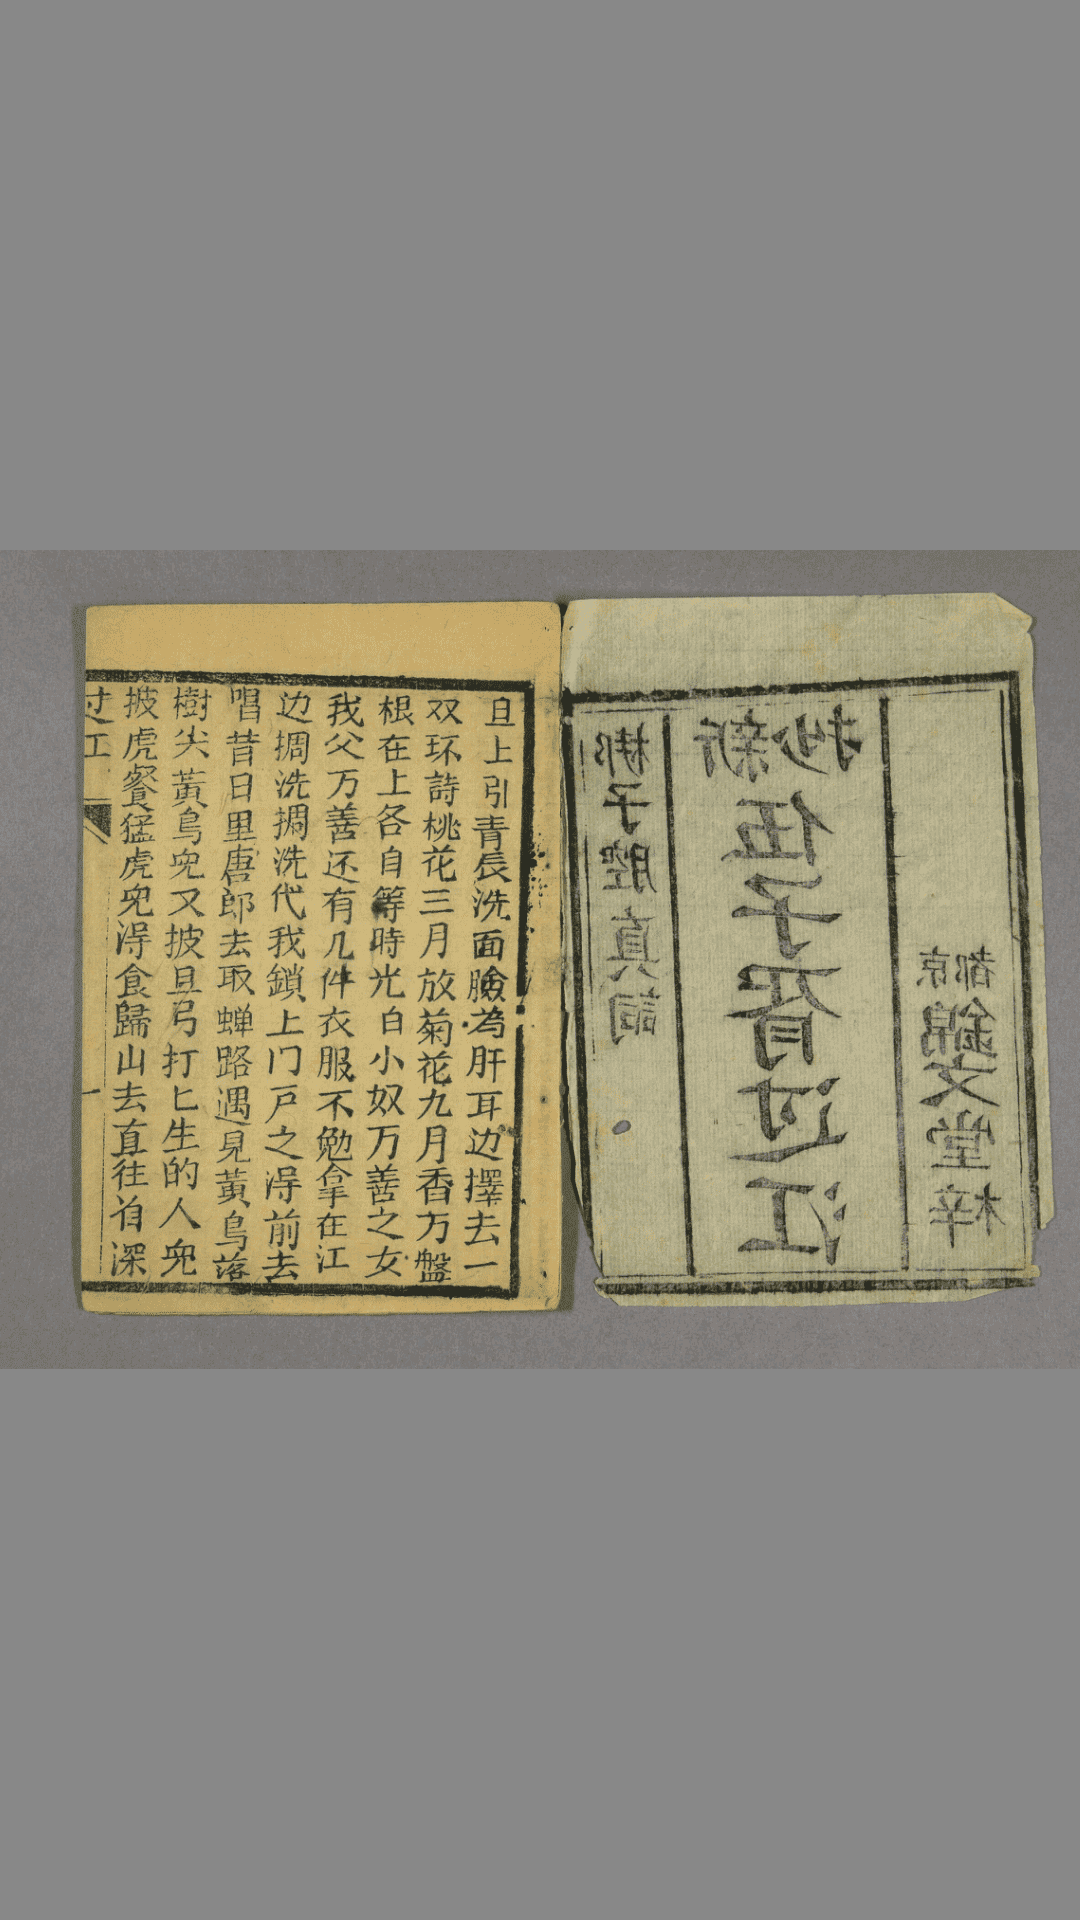 梆子腔真詞
新抄
伍子胥过江
京都
錦文堂梓
旦上引青辰洗面臉为肝耳边擇去一
双环詩桃花三月放菊花九月香万盤
根在上各自等時光白小奴万善之女
我父万善还有几件衣服不勉拿在江
边掆洗掆洗代我鎖上门戸之淂前去
唱昔日里唐郎去取蝉路遇見黃鳥落
樹尖黃鳥兕又披旦弓打匕生的人兕
披虎餐猛虎兕淂食歸山去直往肖深
过江
一